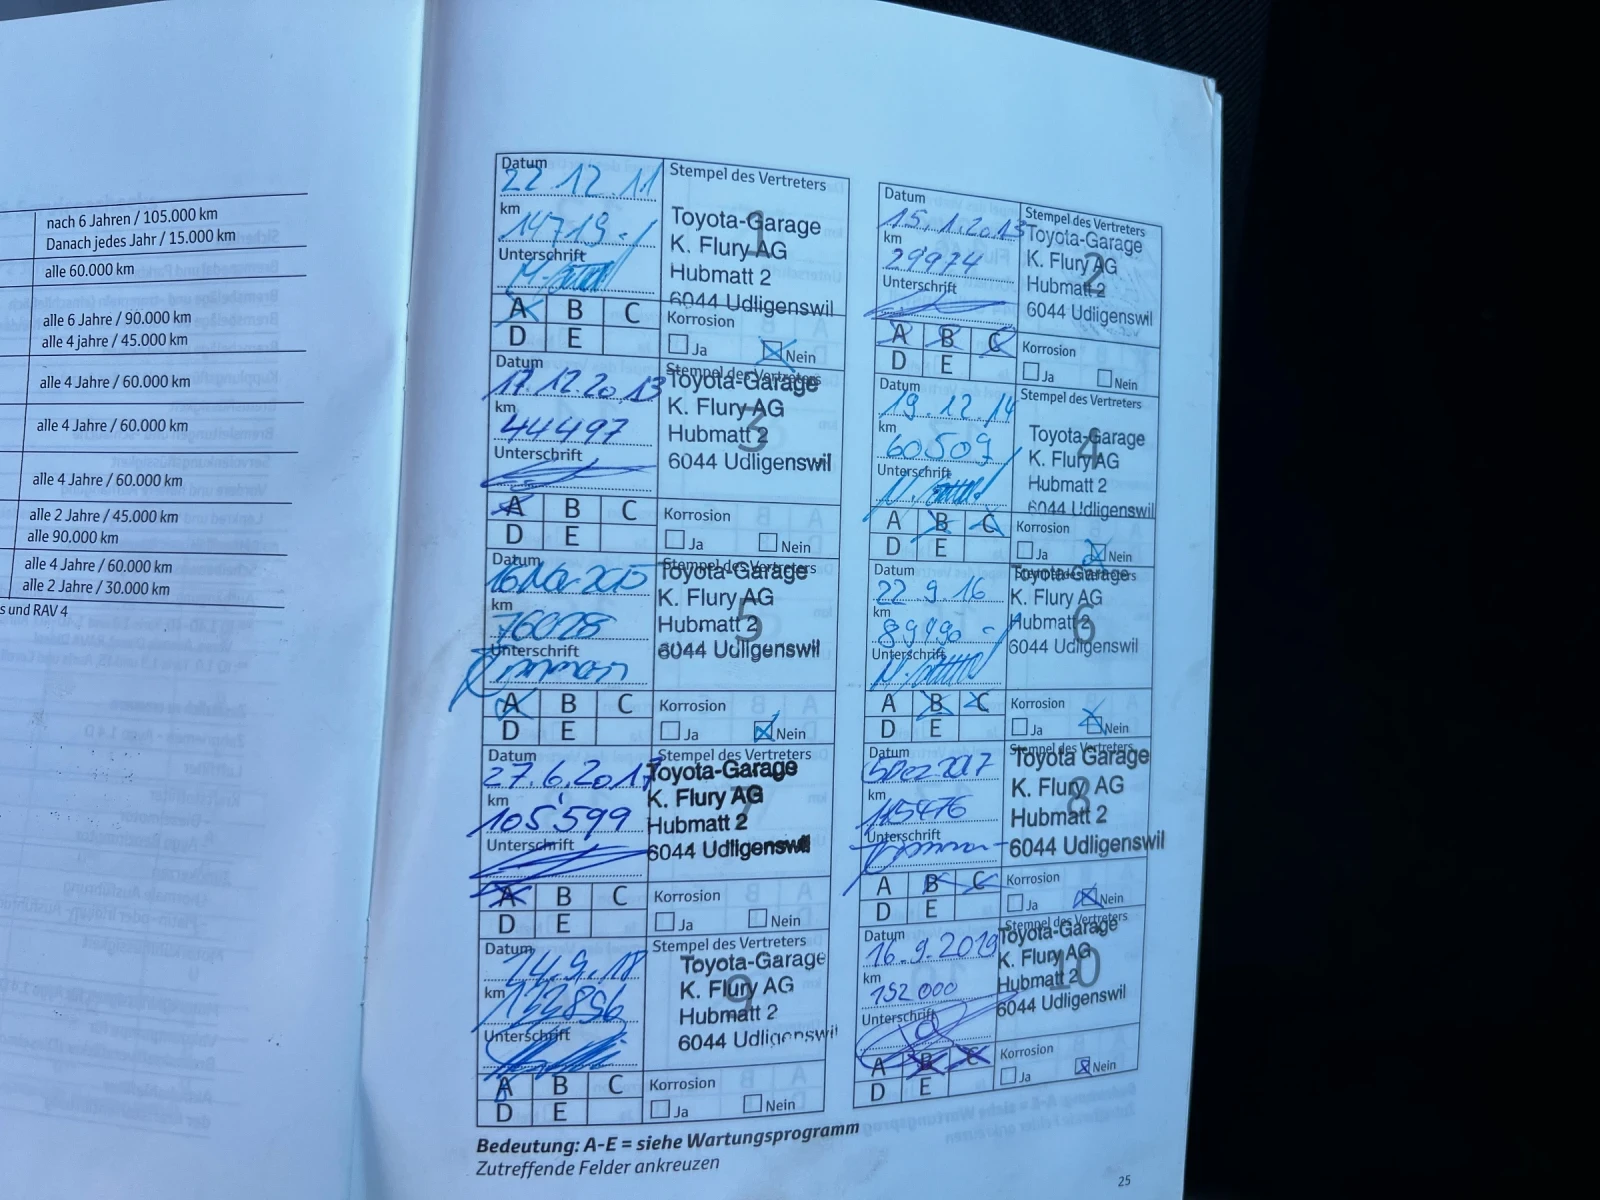 nach 6 Jahren / 105.000 km
Danach jedes Jahr / 15.000 km
alle 60.000 km
alle 6 Jahre / 90.000 km
alle 4 jahre / 45.000 km
alle 4 Jahre / 60.000 km
alle 4 Jahre / 60.000 km
alle 4 Jahre / 60.000 km
alle 2 Jahre / 45.000 km
alle 90.000 km
alle 4 Jahre / 60.000 km
alle 2 Jahre / 30.000 km
s und RAV 4
Datum
22.12.11
km
14719.-/
Unterschrift
Stempel des Vertreters
1
Toyota-Garage
K. Flury AG
Hubmatt 2
6044 Udligenswil
A B C
D E
Korrosion
Ja Nein
Datum
15.1.2013
km
29974
Unterschrift
Stempel des Vertreters
2
Toyota-Garage
K. Flury AG
Hubmatt 2
6044 Udligenswil
A B C
D E
Korrosion
Ja Nein
Datum
17.12.2013
km
44497
Unterschrift
Stempel des Vertreters
3
Toyota-Garage
K. Flury AG
Hubmatt 2
6044 Udligenswil
A B C
D E
Korrosion
Ja Nein
Datum
19.12.14
km
60509
Unterschrift
Stempel des Vertreters
4
Toyota-Garage
K. Flury AG
Hubmatt 2
6044 Udligenswil
A B C
D E
Korrosion
Ja Nein
Datum
km
76028
Unterschrift
Stempel des Vertreters
5
Toyota-Garage
K. Flury AG
Hubmatt 2
6044 Udligenswil
A B C
D E
Korrosion
Ja Nein
Datum
22 9 16
km
89490 -/
Unterschrift
Stempel des Vertreters
6
Toyota-Garage
K. Flury AG
Hubmatt 2
6044 Udligenswil
A B C
D E
Korrosion
Ja Nein
Datum
27.6.2017
km
105'599
Unterschrift
Stempel des Vertreters
7
Toyota-Garage
K. Flury AG
Hubmatt 2
6044 Udligenswil
A B C
D E
Korrosion
Ja Nein
Datum
Dez 2017
km
115476
Unterschrift
Stempel des Vertreters
8
Toyota Garage
K. Flury AG
Hubmatt 2
6044 Udligenswil
A B C
D E
Korrosion
Ja Nein
Datum
14.9.18
km
Unterschrift
Stempel des Vertreters
9
Toyota-Garage
K. Flury AG
Hubmatt 2
6044 Udligenswil
A B C
D E
Korrosion
Ja Nein
Datum
16.9.2019
km
152000
Unterschrift
Stempel des Vertreters
10
Toyota-Garage
K. Flury AG
Hubmatt 2
6044 Udligenswil
A B C
D E
Korrosion
Ja Nein
Bedeutung: A-E = siehe Wartungsprogramm
Zutreffende Felder ankreuzen
25